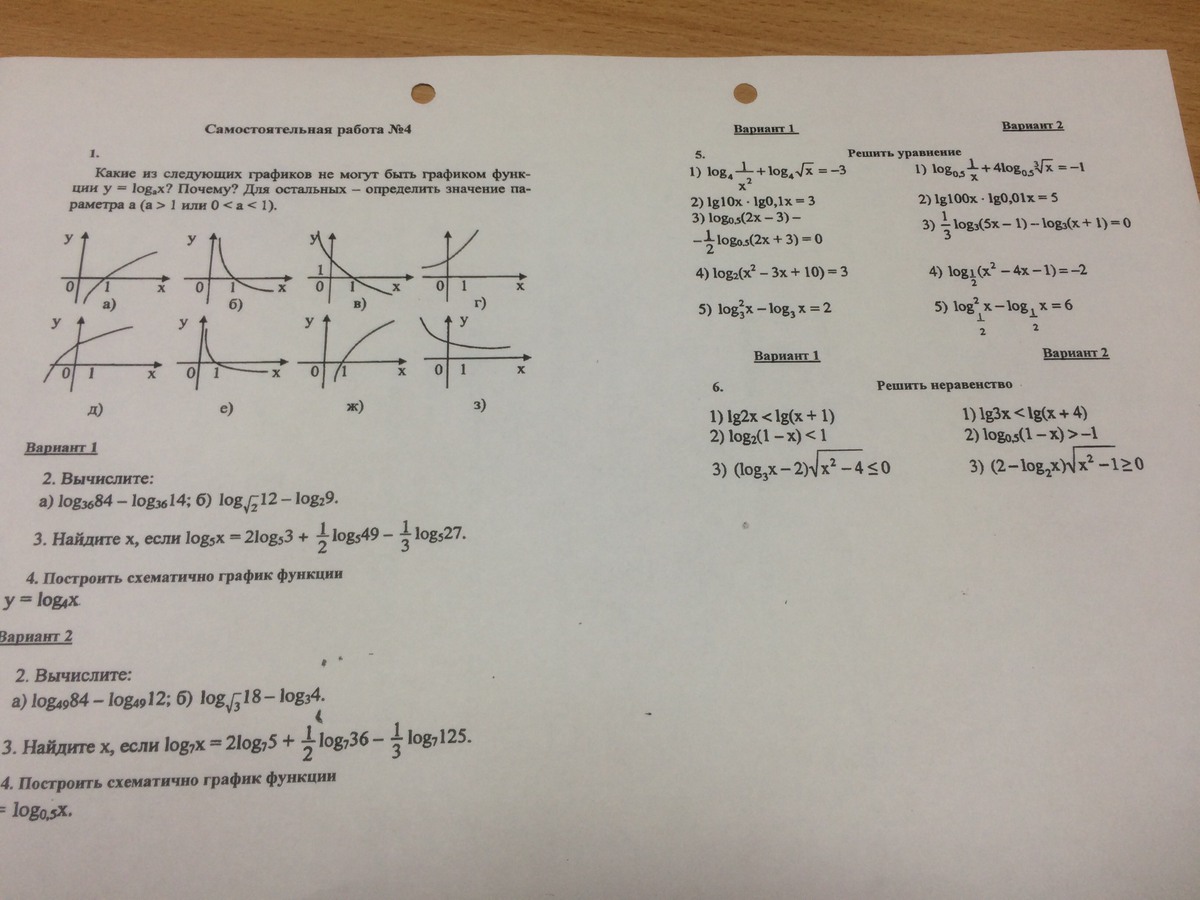 Самостоятельная работа №4
1.
Какие из следующих графиков не могут быть графиком функ-
ции y = logₐx? Почему? Для остальных – определить значение па-
раметра a (a > 1 или 0 < a < 1).
y y y y
1
0 1 x 0 1 x 0 1 x 0 1 x
а) б) в) г)
y y y y
0 1 x 0 1 x 0 1 x 0 1 x
д) е) ж) з)
Вариант 1
2. Вычислите:
а) log₃₆84 – log₃₆14; б) log_√2 12 – log₂9.
3. Найдите x, если log₅x = 2log₅3 + 1/2 log₅49 – 1/3 log₅27.
4. Построить схематично график функции
y = log₄x
Вариант 2
2. Вычислите:
а) log₄₉84 – log₄₉12; б) log_√3 18 – log₃4.
3. Найдите x, если log₇x = 2log₇5 + 1/2 log₇36 – 1/3 log₇125.
4. Построить схематично график функции
= log₀,₅x.
Вариант 1 Вариант 2
5. Решить уравнение
1) log₄ 1/x² + log₄√x = –3 1) log₀,₅ 1/x + 4log₀,₅ ³√x = –1
2) lg10x · lg0,1x = 3 2) lg100x · lg0,01x = 5
3) log₀,₅(2x – 3) –
– 1/2 log₀,₅(2x + 3) = 0 3) 1/3 log₃(5x – 1) – log₃(x + 1) = 0
4) log₂(x² – 3x + 10) = 3 4) log_1/2(x² – 4x – 1) = –2
5) log₃²x – log₃x = 2 5) log²_1/2 x – log_1/2 x = 6
Вариант 1 Вариант 2
6. Решить неравенство
1) lg2x < lg(x + 1) 1) lg3x < lg(x + 4)
2) log₂(1 – x) < 1 2) log₀,₅(1 – x) > –1
3) (log₃x – 2)√(x² – 4) ≤ 0 3) (2 – log₂x)√(x² – 1) ≥ 0